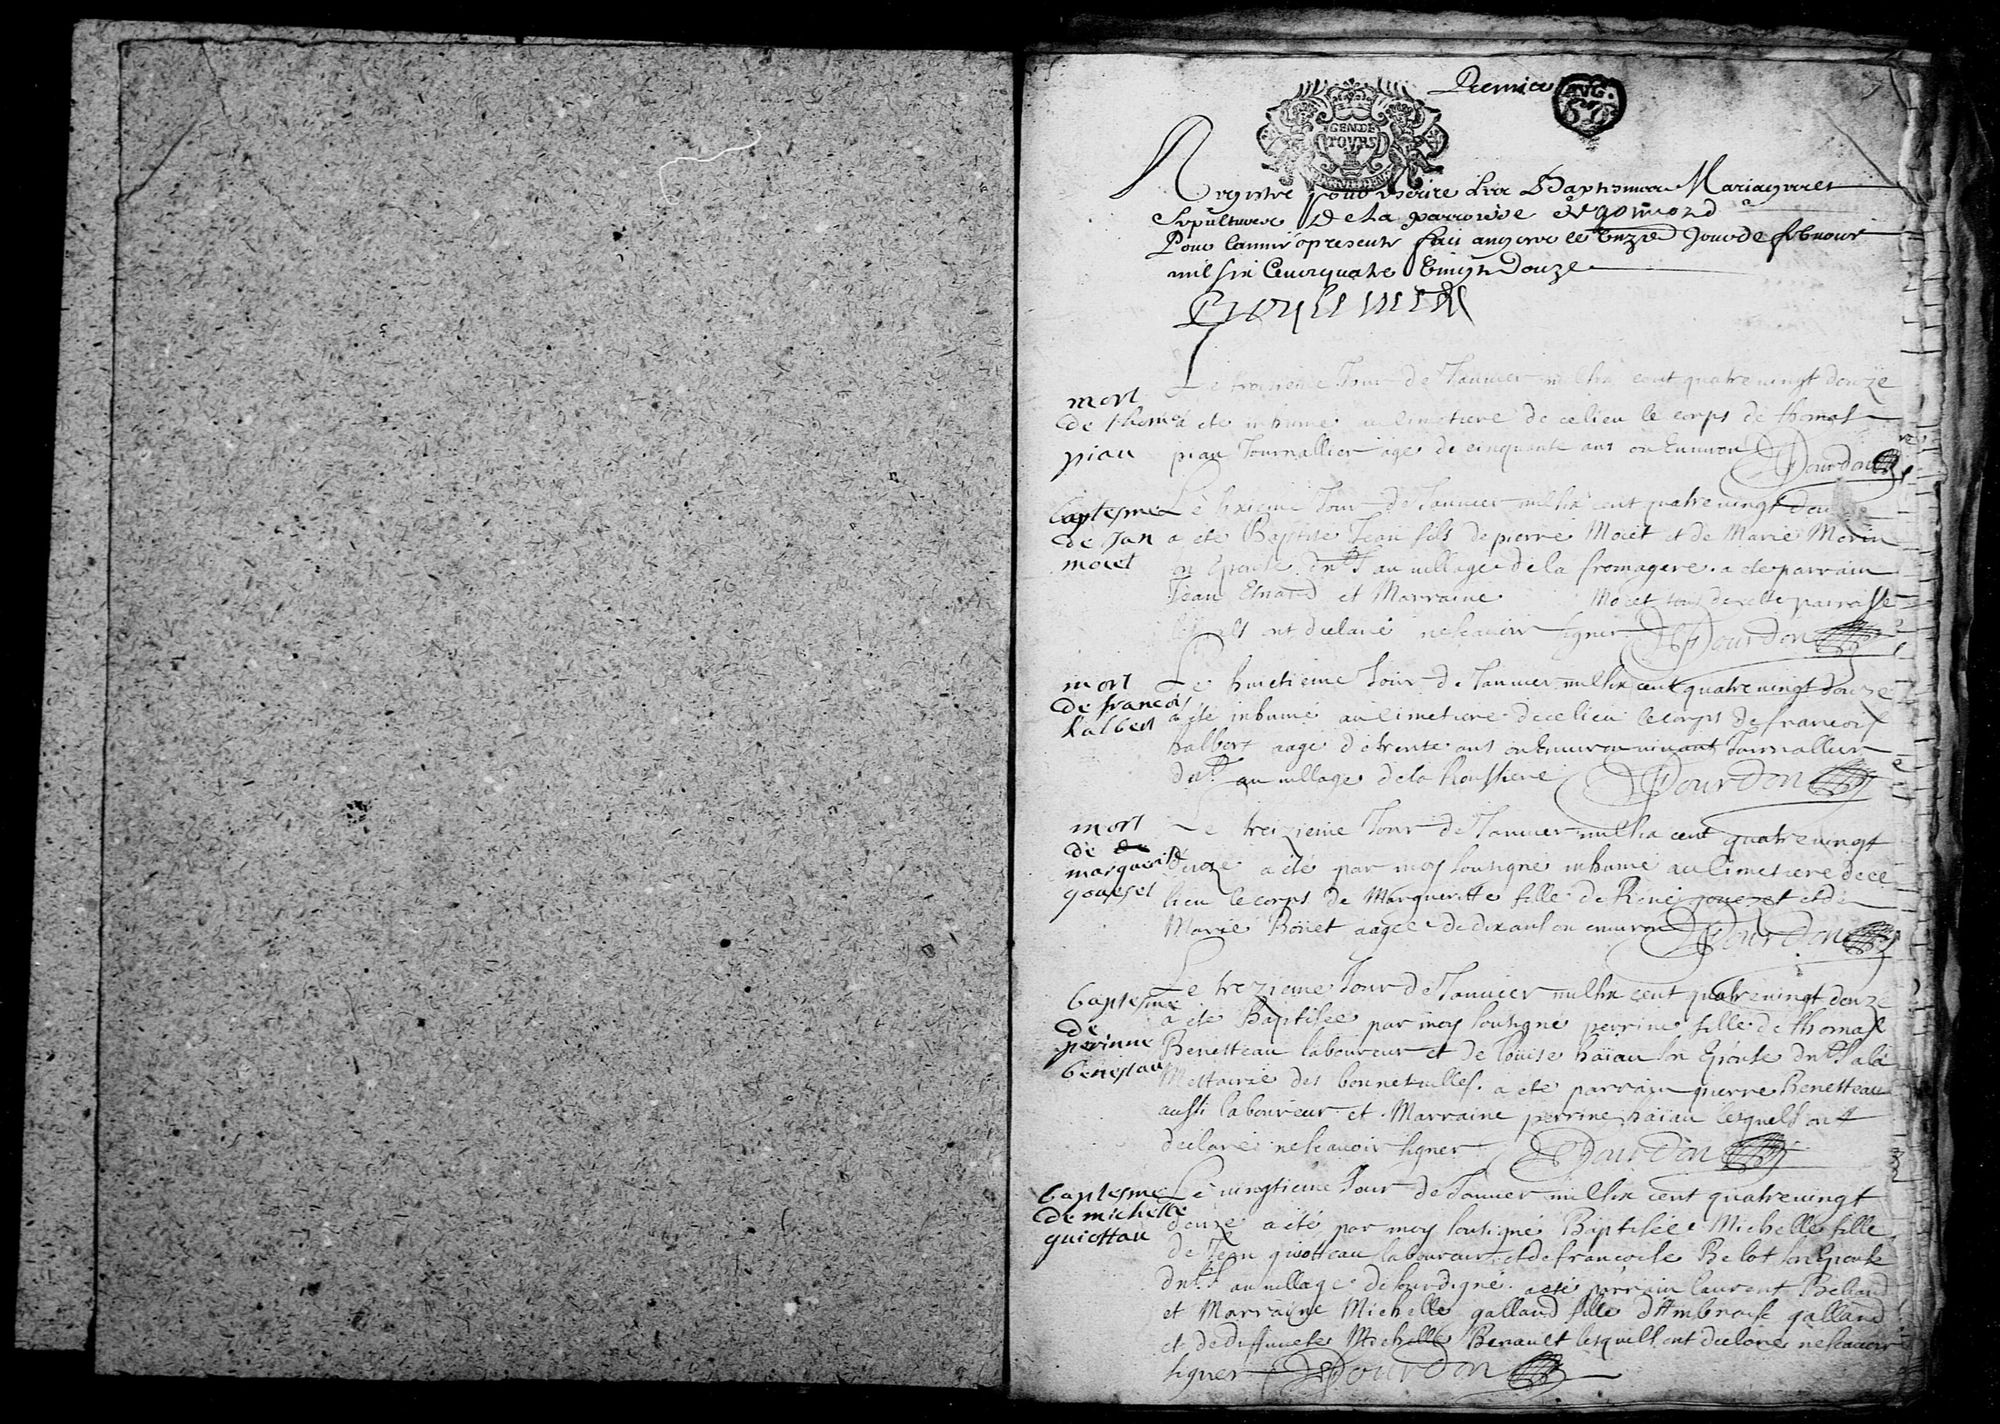 Premier
GEN DE
TOVRS
Registre pour Escrire Les Baptesmes Mariages et
Sepultures De La parroisse
Pour Lannée presente fait angers le Onze Jour de febvrier
mil six Cent quatre Vingt Douze
Le troisieme Jour de Janvier mil six cent quatre vingt douze
mort
de thomas
piau
a ete inhumé au Cimetiere de ce lieu le corps de thomas
piau Journallier agé de cinquante ans ou Environ Dourdon
baptesme
de Jan
moiet
Le sixieme Jour de Janvier mil six cent quatre vingt douze
a ete Baptisé Jean fils de pierre Moiet et de Marie Morin
son Epouse dnt au village de la fromagere a ete parrain
Jean Enard et Marraine Moiet tous de cette parroisse
lesquels ont declaré ne scavoir signer Dourdon
mort
de francois
halbert
Le huictieme Jour de Janvier mil six cent quatre vingt douze
a été inhumé au Cimetiere de ce lieu le corps de francois
halbert aagé de trente ans ou Environ vivant Journallier
dnt au village de la houssiere Dourdon
mort
de
marguerite
gouezet
Le treizieme Jour de Janvier mil six cent quatre vingt
douze a été par moy soubsigné inhumé au Cimetiere de ce
lieu le corps de Margueritte fille de René gouezet et de
Marie Boüet aagee de dix ans ou environ Dourdon
baptesme
de
perinne
benestau
Le trezieme Jour de Janvier mil six cent quatre vingt douze
a ete Baptisee par moy soutigné perrine fille de thomas
Benesteau laboureur et de Louise haiau son Epouse dnt a la
Mestairie des bonnetailles a ete parrain pierre Benesteau
aussi laboureur et Marraine perrine haiau lesquels ont
declaré ne scavoir signer Dourdon
baptesme
de michelle
guiottau
Le vingtieme Jour de Janvier mil six cent quatre vingt
douze a été par moy soutigné Baptisée Michelle fille
de Jean guiotteau laboureur et de francoise Belot son Epouse
dnt au village de sourdigné a eté parrain laurent Belland
et Marraine Michelle galland fille d'Ambroise galland
et de deffuncte Michelle Benault lesquels ont declaré ne scavoir
signer Dourdon